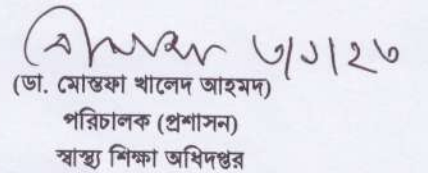 ৩/১/২৩
(ডা. মোস্তফা খালেদ আহমদ)
পরিচালক (প্রশাসন)
স্বাস্থ্য শিক্ষা অধিদপ্তর